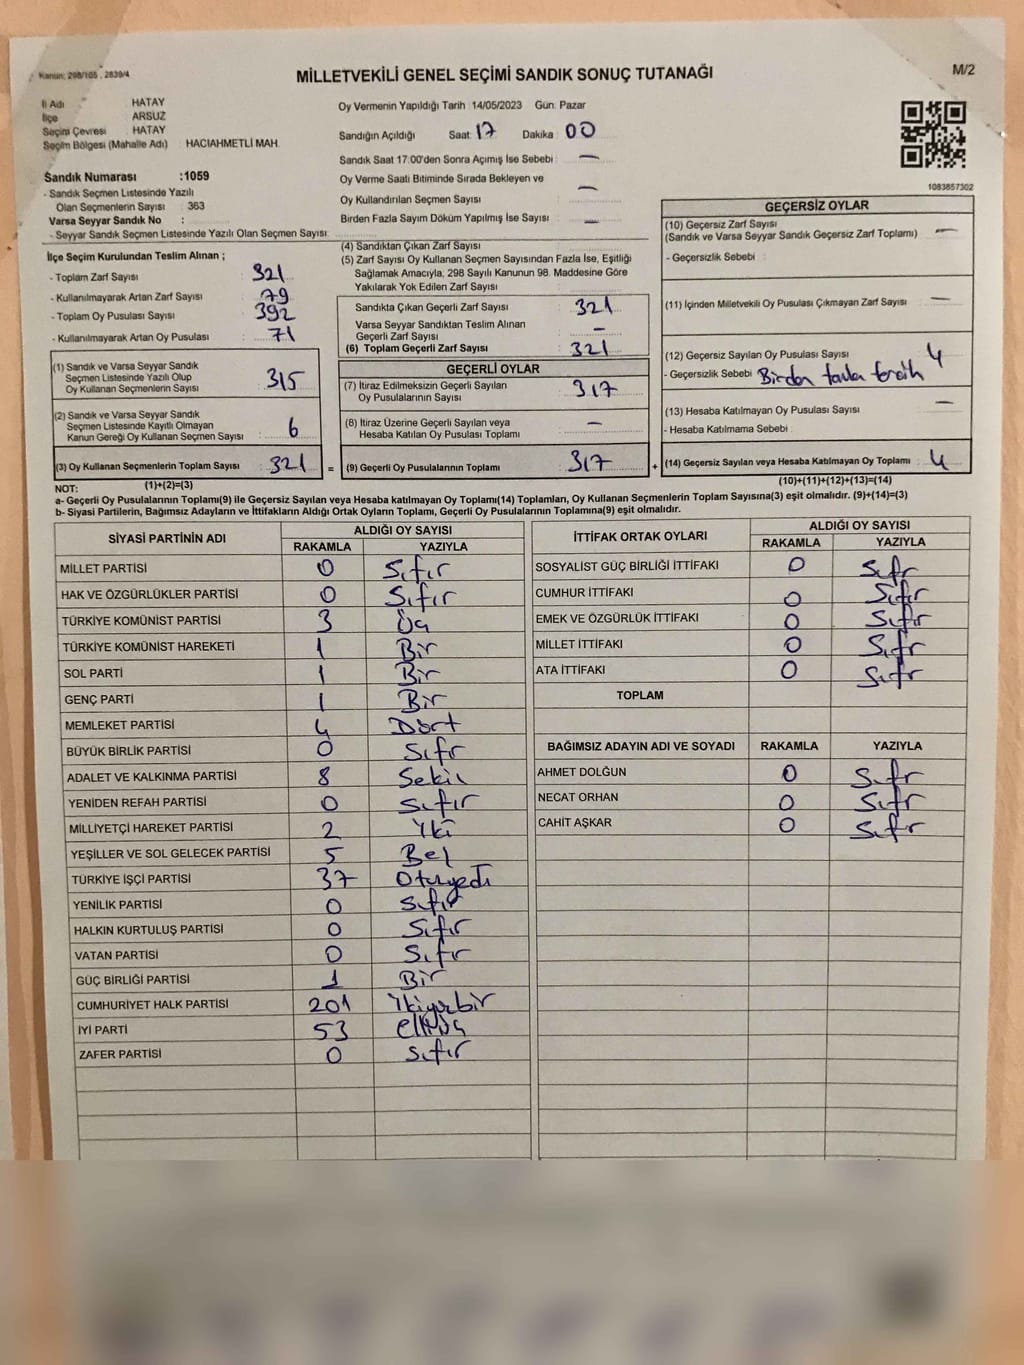 Kanun: 298/105 , 2839/4
MİLLETVEKİLİ GENEL SEÇİMİ SANDIK SONUÇ TUTANAĞI
M/2
İl Adı HATAY
İlçe ARSUZ
Seçim Çevresi HATAY
Seçim Bölgesi (Mahalle Adı) HACIAHMETLİ MAH.
Sandık Numarası :1059
- Sandık Seçmen Listesinde Yazılı
Olan Seçmenlerin Sayısı : 363
Varsa Seyyar Sandık No :
- Seyyar Sandık Seçmen Listesinde Yazılı Olan Seçmen Sayısı:
Oy Vermenin Yapıldığı Tarih : 14/05/2023 Gün: Pazar
Sandığın Açıldığı Saat: 17 Dakika : 00
Sandık Saat 17:00'den Sonra Açımış İse Sebebi : —
Oy Verme Saati Bitiminde Sırada Bekleyen ve
Oy Kullandırılan Seçmen Sayısı : —
Birden Fazla Sayım Döküm Yapılmış İse Sayısı : —
1083857302
İlçe Seçim Kurulundan Teslim Alınan ;
- Toplam Zarf Sayısı : 321
- Kullanılmayarak Artan Zarf Sayısı : 79
- Toplam Oy Pusulası Sayısı : 392
- Kullanılmayarak Artan Oy Pusulası : 71
(1) Sandık ve Varsa Seyyar Sandık
Seçmen Listesinde Yazılı Olup
Oy Kullanan Seçmenlerin Sayısı : 315
(2) Sandık ve Varsa Seyyar Sandık
Seçmen Listesinde Kayıtlı Olmayan
Kanun Gereği Oy Kullanan Seçmen Sayısı : 6
(3) Oy Kullanan Seçmenlerin Toplam Sayısı : 321
(4) Sandıktan Çıkan Zarf Sayısı :
(5) Zarf Sayısı Oy Kullanan Seçmen Sayısından Fazla İse, Eşitliği
Sağlamak Amacıyla, 298 Sayılı Kanunun 98. Maddesine Göre
Yakılarak Yok Edilen Zarf Sayısı :
Sandıkta Çıkan Geçerli Zarf Sayısı : 321
Varsa Seyyar Sandıktan Teslim Alınan
Geçerli Zarf Sayısı : —
(6) Toplam Geçerli Zarf Sayısı : 321
GEÇERLİ OYLAR
(7) İtiraz Edilmeksizin Geçerli Sayılan
Oy Pusulalarının Sayısı : 317
(8) İtiraz Üzerine Geçerli Sayılan veya
Hesaba Katılan Oy Pusulası Toplamı : —
= (9) Geçerli Oy Pusulalarının Toplamı : 317
GEÇERSİZ OYLAR
(10) Geçersiz Zarf Sayısı
(Sandık ve Varsa Seyyar Sandık Geçersiz Zarf Toplamı) : —
- Geçersizlik Sebebi :
(11) İçinden Milletvekili Oy Pusulası Çıkmayan Zarf Sayısı : —
(12) Geçersiz Sayılan Oy Pusulası Sayısı : 4
- Geçersizlik Sebebi : Birden fazla tercih
(13) Hesaba Katılmayan Oy Pusulası Sayısı : —
- Hesaba Katılmama Sebebi :
+ (14) Geçersiz Sayılan veya Hesaba Katılmayan Oy Toplamı : 4
NOT: (1)+(2)=(3)
(10)+(11)+(12)+(13)=(14)
a- Geçerli Oy Pusulalarının Toplamı(9) ile Geçersiz Sayılan veya Hesaba katılmayan Oy Toplamı(14) Toplamları, Oy Kullanan Seçmenlerin Toplam Sayısına(3) eşit olmalıdır. (9)+(14)=(3)
b- Siyasi Partilerin, Bağımsız Adayların ve İttifakların Aldığı Ortak Oyların Toplamı, Geçerli Oy Pusulalarının Toplamına(9) eşit olmalıdır.
SİYASİ PARTİNİN ADI ALDIĞI OY SAYISI
RAKAMLA YAZIYLA
MİLLET PARTİSİ 0 Sıfır
HAK VE ÖZGÜRLÜKLER PARTİSİ 0 Sıfır
TÜRKİYE KOMÜNİST PARTİSİ 3 Üç
TÜRKİYE KOMÜNİST HAREKETİ 1 Bir
SOL PARTİ 1 Bir
GENÇ PARTİ 1 Bir
MEMLEKET PARTİSİ 4 Dört
BÜYÜK BİRLİK PARTİSİ 0 Sıfır
ADALET VE KALKINMA PARTİSİ 8 Sekiz
YENİDEN REFAH PARTİSİ 0 Sıfır
MİLLİYETÇİ HAREKET PARTİSİ 2 İki
YEŞİLLER VE SOL GELECEK PARTİSİ 5 Beş
TÜRKİYE İŞÇİ PARTİSİ 37 Otuzyedi
YENİLİK PARTİSİ 0 Sıfır
HALKIN KURTULUŞ PARTİSİ 0 Sıfır
VATAN PARTİSİ 0 Sıfır
GÜÇ BİRLİĞİ PARTİSİ 1 Bir
CUMHURİYET HALK PARTİSİ 201 İkiyüzbir
İYİ PARTİ 53 elliüç
ZAFER PARTİSİ 0 Sıfır
İTTİFAK ORTAK OYLARI ALDIĞI OY SAYISI
RAKAMLA YAZIYLA
SOSYALİST GÜÇ BİRLİĞİ İTTİFAKI 0 Sıfır
CUMHUR İTTİFAKI 0 Sıfır
EMEK VE ÖZGÜRLÜK İTTİFAKI 0 Sıfır
MİLLET İTTİFAKI 0 Sıfır
ATA İTTİFAKI 0 Sıfır
TOPLAM
BAĞIMSIZ ADAYIN ADI VE SOYADI RAKAMLA YAZIYLA
AHMET DOLĞUN 0 Sıfır
NECAT ORHAN 0 Sıfır
CAHİT AŞKAR 0 Sıfır